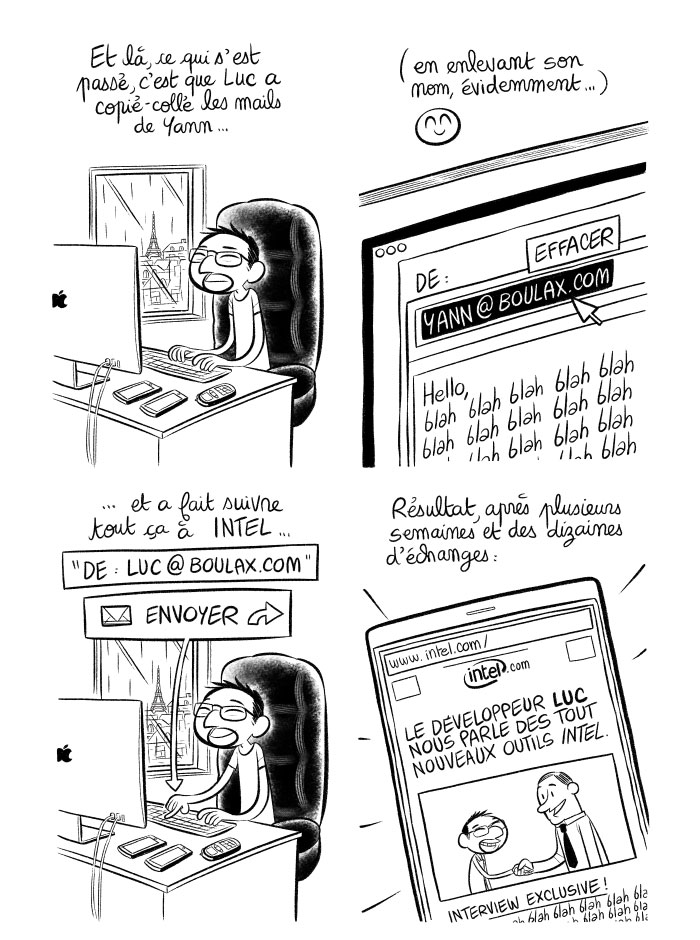 Et là, ce qui s'est
passé, c'est que Luc a
copié-collé les mails
de Yann...
(en enlevant son
nom, évidemment...)
EFFACER
DE :
YANN@BOULAX.COM
Hello,
blah blah blah blah blah
blah blah blah blah blah
blah blah blah blah blah
... et a fait suivre
tout ça à INTEL...
"DE : LUC@BOULAX.COM"
ENVOYER
Résultat, après plusieurs
semaines et des dizaines
d'échanges :
www.intel.com/
intel.com
LE DEVELOPPEUR LUC
NOUS PARLE DES TOUT
NOUVEAUX OUTILS INTEL.
INTERVIEW EXCLUSIVE !
blah blah blah blah